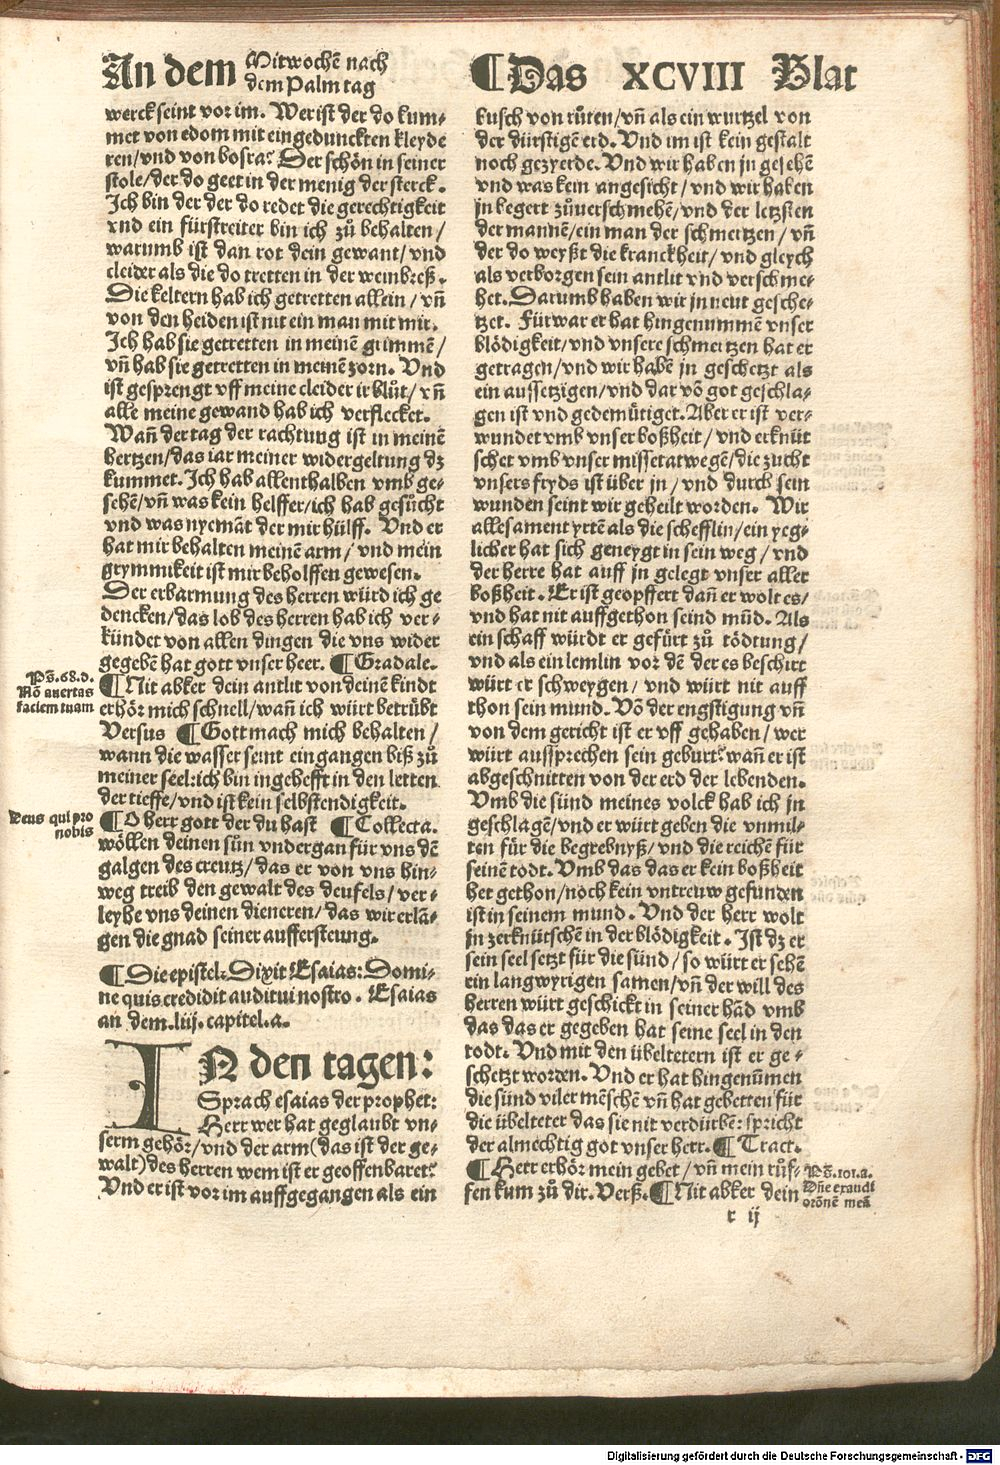 An dem Mitwochē nach dem Palmtag
¶ Das XCVIII Blat
werck seint vor im. Wer ist der do kum⸗
met von edom mit eingedunckten kleyde
ren/vnd von bosra? Der schön in seiner
stole/der do geet in der menig der sterck.
Ich bin der der do redet die gerechtigkeit
vnd ein fürstreiter bin ich zů behalten/
warumb ist dan rot dein gewant/vnd
cleider als die do tretten in der weinbreß.
Die keltern hab ich getretten allein/vñ
von den heiden ist nit ein man mit mir.
Ich hab sie getretten in meinē grimmē/
vñ hab sie getretten in meinē zorn. Vnd
ist gesprengt vff meine cleider ir blůt/vñ
alle meine gewand hab ich verflecket.
Wañ der tag der rachtung ist in meinē
hertzen/das iar meiner widergeltung dz
kummet. Ich hab allenthalben vmb ge⸗
sehē/vñ was kein helffer/ich hab gesůcht
vnd was nyemāt der mir hülff. Vnd er
hat mir behalten meinē arm/vnd mein
grymmikeit ist mir beholffen gewesen.
Der erbarmung des herren würd ich ge
dencken/das lob des herren hab ich ver⸗
kündet von allen dingen die vns wider
gegebē hat gott vnser heer. ¶ Gradale.
Ps̄. 68. d.
Nō auertas
faciem tuam
¶ Nit abker dein antlit von deinē kindt
erhör mich schnell/wañ ich würt betrůbt
Versus ¶ Gott mach mich behalten/
wann die wasser seint eingangen biß zů
meiner seel: ich bin ingehefft in den letten
der tieffe/vnd ist kein selbstendigkeit.
Deus qui pro
nobis
¶ O herr gott der du hast ¶ Collecta.
wöllen deinen sůn vndergan für vns dē
galgen des creutz/das er von vns hin⸗
weg treib den gewalt des deufels/ver⸗
leyhe vns deinen dieneren/das wir erlā⸗
gen die gnad seiner auffersteung.
¶ Die epistel. Dixit Esaias: Domi⸗
ne quis credidit auditui nostro. Esaias
an dem .liij. capitel. a.
IN den tagen:
Sprach esaias der prophet:
Herr wer hat geglaubt vn⸗
serm gehör/vnd der arm (das ist der ge⸗
walt) des herren wem ist er geoffenbaret?
Vnd er ist vor im auffgegangen als ein
kusch von růten/vñ als ein wurtzel von
der dürstigē erd. Vnd im ist kein gestalt
noch gezyerde. Vnd wir haben jn gesehē
vnd was kein angesicht/vnd wir haben
jn begert zůuerschmehē/vnd der letzsten
der mannē/ein man der schmertzen/vñ
der do weyßt die kranckheit/vnd gleych
als verborgen sein antlit vnd verschme⸗
het. Darumb haben wir jn neut gesche⸗
tzet. Fürwar er hat hingenummē vnser
blödigkeit/vnd vnsere schmertzen hat er
getragen/vnd wir habē jn geschetzt als
ein aussetzigen/vnd dar vō got geschla⸗
gen ist vnd gedemütiget. Aber er ist ver⸗
wundet vmb vnser boßheit/vnd erknüt
schet vmb vnser missetat wegē/die zucht
vnsers fryds ist über jn/vnd durch sein
wunden seint wir geheilt worden. Wir
allesament yrtē als die schefflin/ein yeg⸗
licher hat sich geneygt in sein weg/vnd
der herre hat auff jn gelegt vnser aller
boßheit. Er ist geopffert dañ er wolt es/
vnd hat nit auffgethon seind mūd. Als
ein schaff würdt er gefůrt zů tödtung/
vnd als ein lemlin vor dē der es beschirt
würt er schweygen/vnd würt nit auff
thon sein mund. Vō der engstigung vñ
von dem gericht ist er vff gehaben/wer
würt aussprechen sein geburt? wañ er ist
abgeschnitten von der erd der lebenden.
Vmb die sünd meines volck hab ich jn
geschlagē/vnd er würt geben die vnmil⸗
ten für die begrebnyß/vnd die reichē für
seinē todt. Vmb das das er kein boßheit
het gethon/noch kein vntreuw gefunden
ist in seinem mund. Vnd der herr wolt
jn zerknütschē in der blödigkeit. Ist dz er
sein seel setzt für die sünd/so würt er sehē
ein langwyrigen samen/vñ der will des
herren würt geschickt in seiner hād vmb
das das er gegeben hat seine seel in den
todt. Vnd mit den übeltetern ist er ge⸗
schetzt worden. Vnd er hat hingenūmen
die sünd viler mēschē vñ hat gebetten für
die übelteter das sie nit verdürbē: spricht
der almechtig got vnser herr. ¶ Tract.
¶ Herr erhör mein gebet/vñ mein růf⸗
fen kum zů dir. Verß. ¶ Nit abker dein
Ps̄. 101. a.
Dn̄e exaudi
orōnem meā
r ij
Digitalisierung gefördert durch die Deutsche Forschungsgemeinschaft - DFG